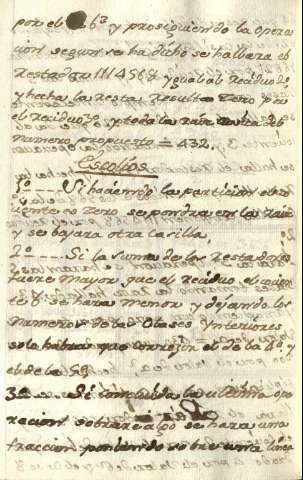 por el 6.º y prosiguiendo la opera
cion segun se ha dicho se hallara el
Restador 111456 8 y qual al Residuo 2º
y hecha la resta resulta zero por
el residuo 3º y toda la raiz del
numero propuesto = 432.
Escolios
1º Si haciendo la particion el co
ciente es Zero se pondra en la raiz
y se bajara otra carilla.
2º Si la suma de los Restadores
fuere mayor que el Residuo el cocien
te 6 se hara menor y dejando los
numeros de las Clases Ynteriores
solo habra que corregir el de la 4ª y
el de la 5ª
3º Si concluida la ultima ope
racion sobrare algo se hara una
fraccion poniendo sobre una linea